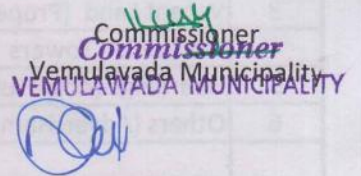 Commissioner
Commissioner
Vemulavada Municipality
VEMULAWADA MUNICIPALITY